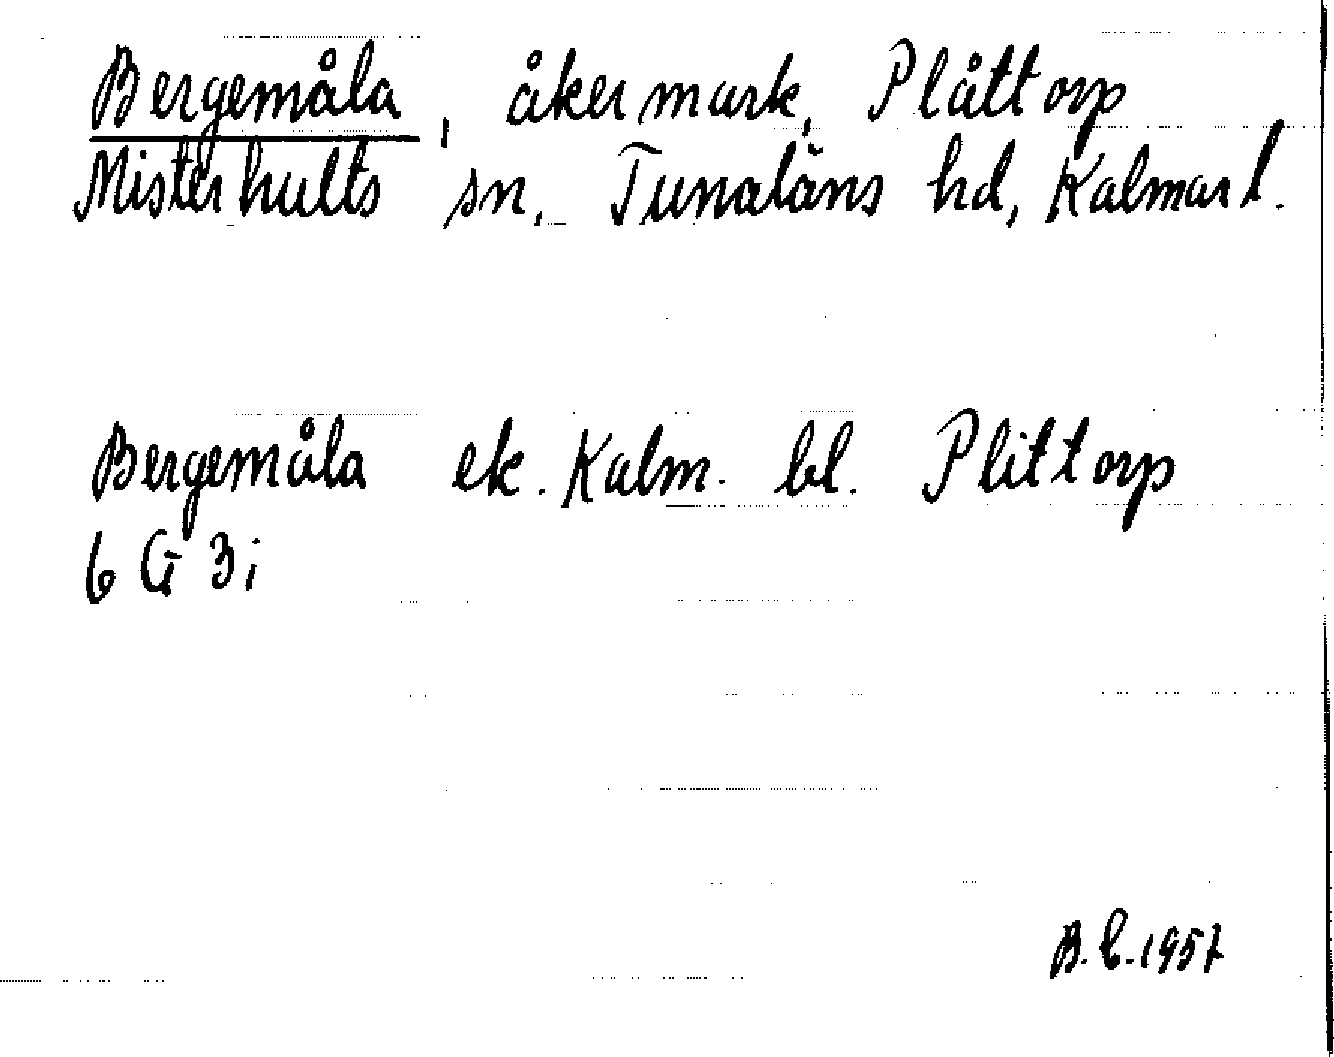 Bergemåla, åkermark, Plåttorp
Misterhults sn, Tunaläns hd, Kalmar l.
Bergemåla ek. Kalm. bl. Plittorp
6 G 3i
B.C. 1957